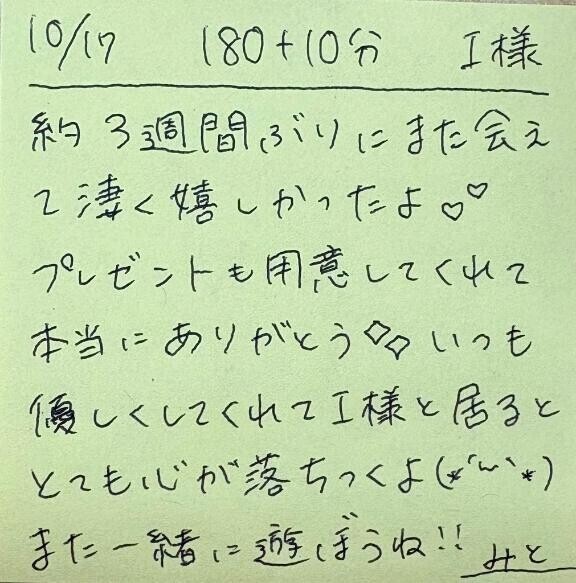 10/17 180+10分 I様
約3週間ぶりにまた会え
て凄く嬉しかったよ♡♡
プレゼントも用意してくれて
本当にありがとう◇◇いつも
優しくしてくれてI様と居ると
とても心が落ちつくよ(*´︶`*)
また一緒に遊ぼうね!! みと